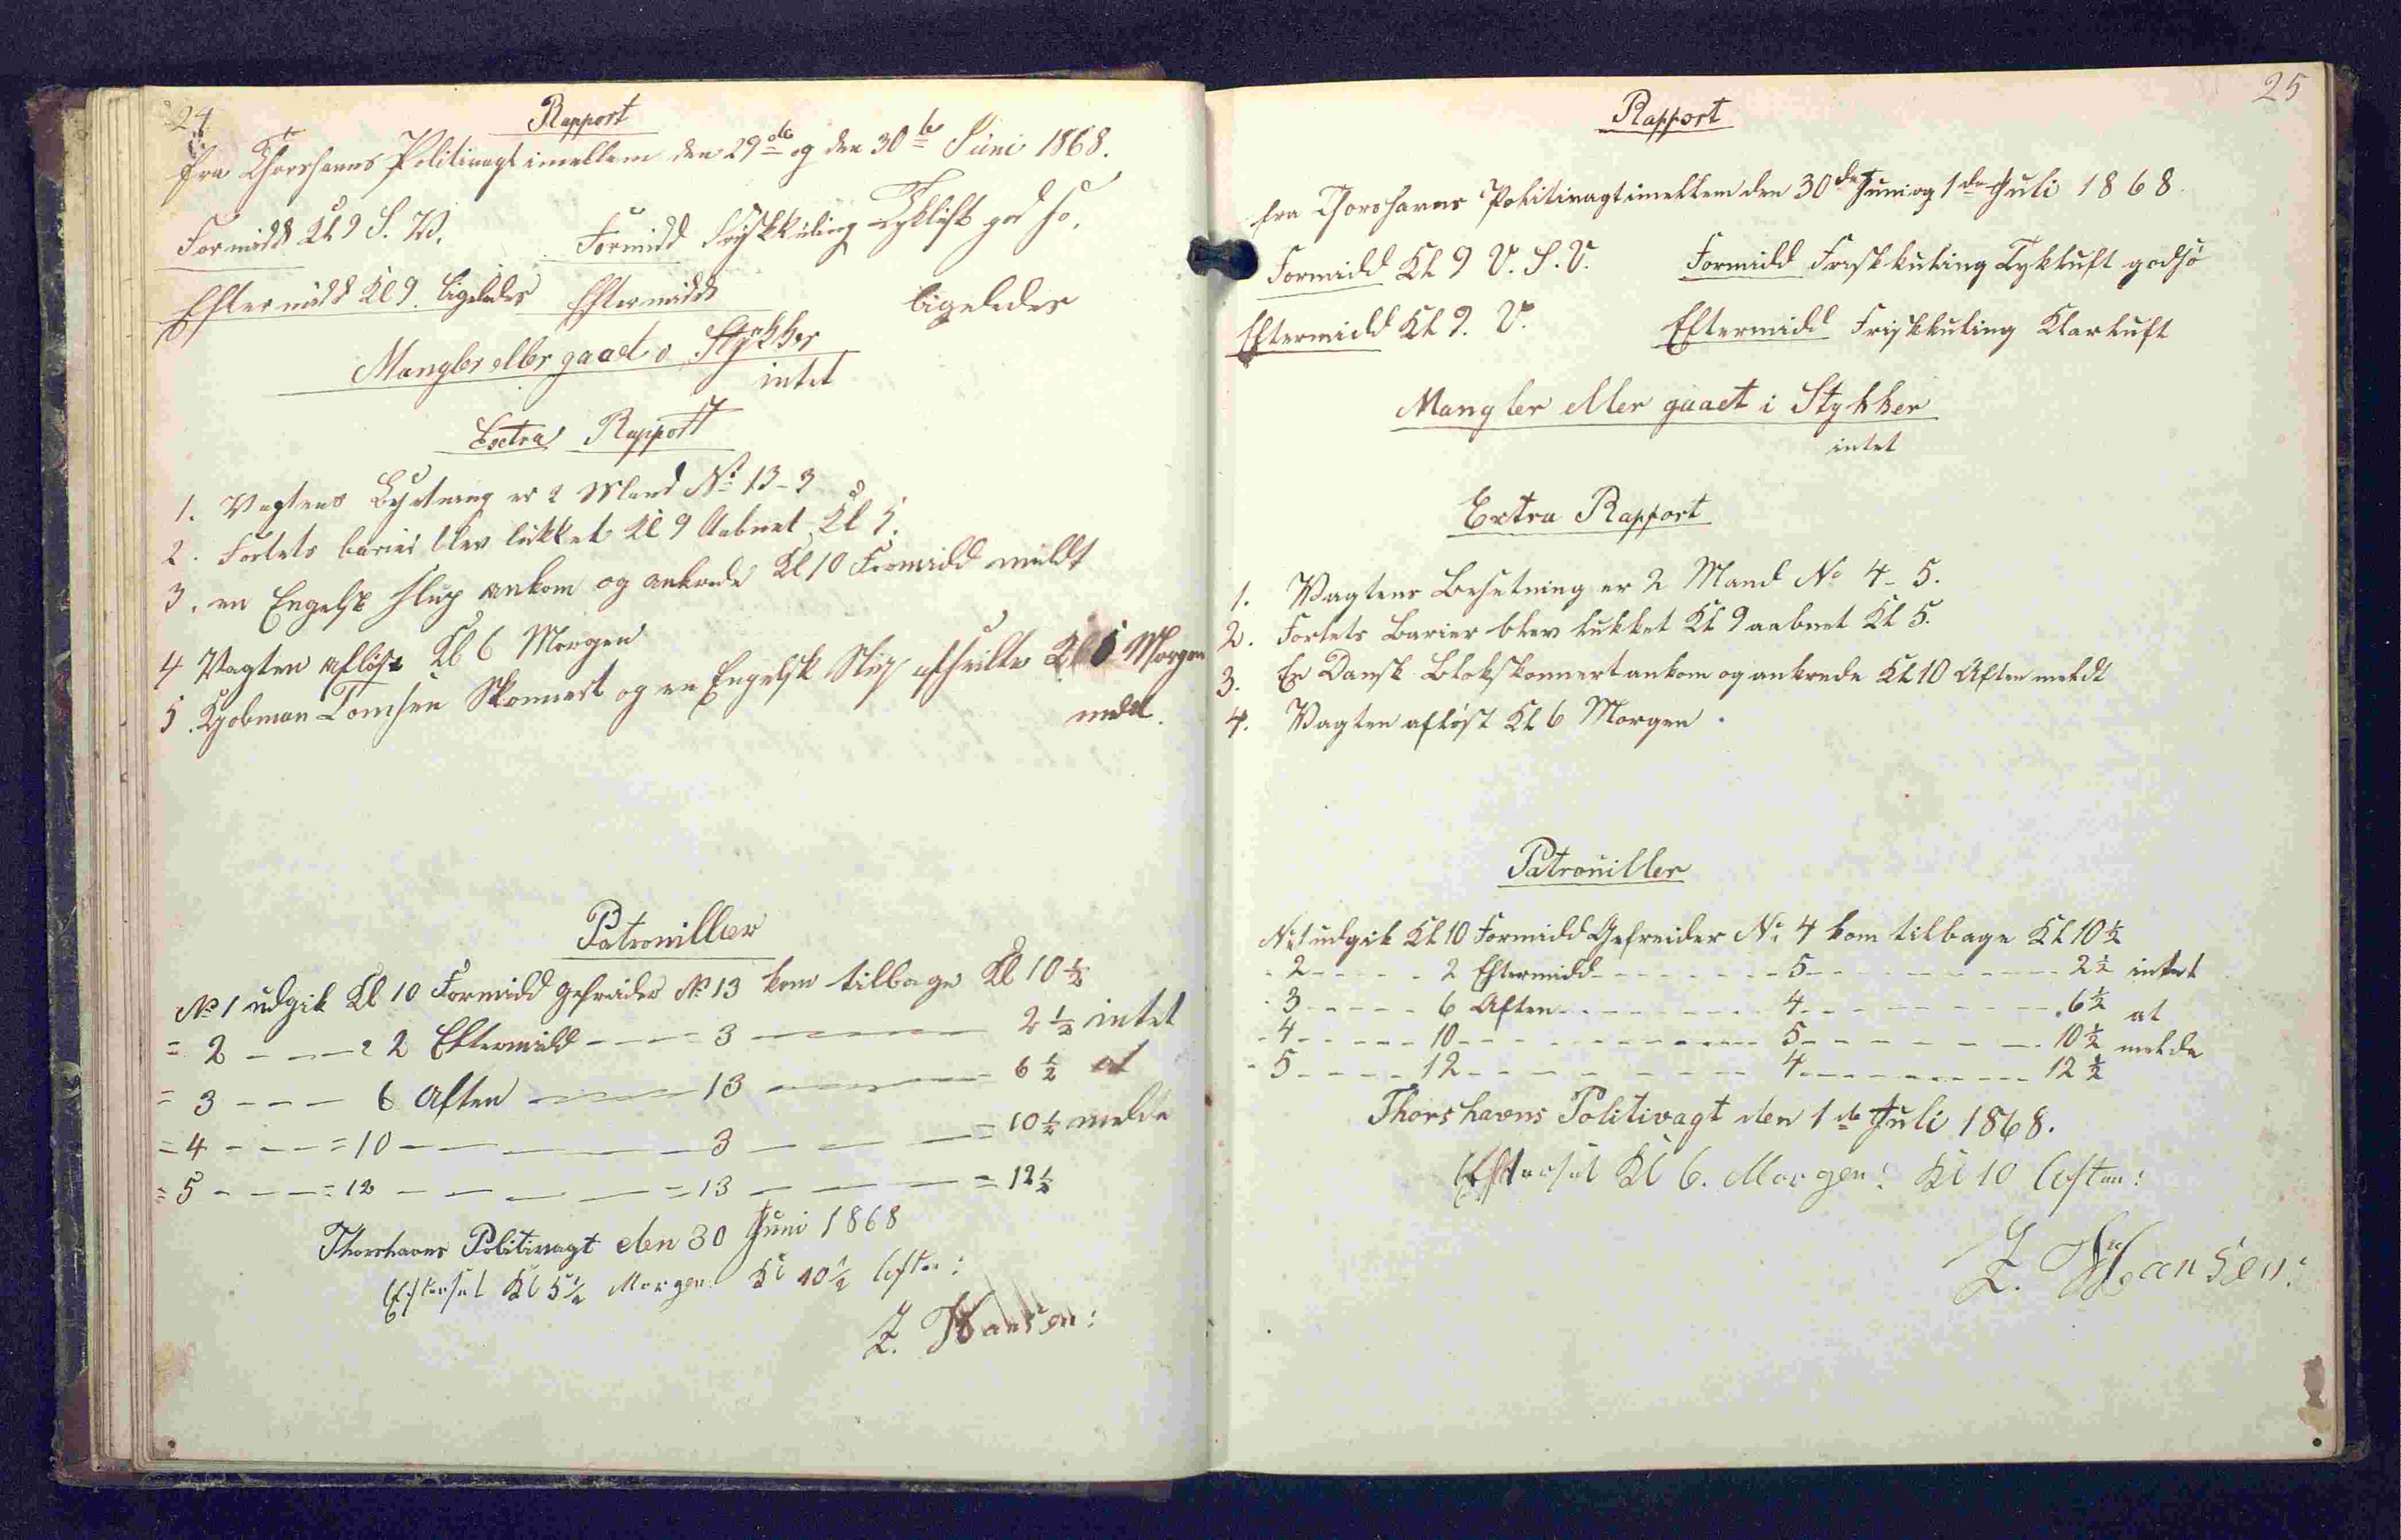 24
Rapport
fra Thorshavns Politivagt imellem den 29de og den 30te Juni 1868.
Formidd Kl 9 S. W. Formidd Friskkuling Tykluft god Sø.
Eftermidd Kl 9. ligeledes Eftermidd ligeledes
Mangler eller gaaet i Stykker
intet
Extra Rapport
1. Vagtens Besetning er 2 Mand No 13 - 3
2. Fortets barier blev lukket Kl 9 Aabnet Kl 5.
3. en Engelsk Slup ankom og ankrede Kl 10 Formidd meldt
4 Vagten afløst Kl 6 Morgen
5. Kjøbman Tomsen Skonnert og en Engelsk Slup afseilte Kl 5 Morgen
meldt.
Patrouiller
No 1 udgik Kl 10 Formidd Gefreider No 13 kom tilbage Kl 10 ½
= 2 - - - 2 Eftermidd - - - 3 - - - 2 ½ intet
= 3 - - - 6 Aften - - - 13 - - - 6 ½ at
= 4 - - - = 10 - - - 3 - - - = 10 ½ melde
= 5 - - - = 12 - - - = 13 - - - = 12 ½
Thorshavns Politivagt den 30 Juni 1868
Efterset Kl 5 ½ Morgen: Kl 10 ½ Aften:
Z. Hansen:
25
Rapport
fra Thorshavns Politivagt imellem den 30de Juni og 1de Juli 1868.
Formidd Kl 9 V. S. V. Formidd Friskkuling Tykluft godsø
Eftermidd Kl 9. V. Eftermidd Friskkuling Klarluft
Mangler eller gaaet i Stykker
intet
Extra Rapport
1. Vagtens Besetning er 2 Mand No 4 - 5.
2. Fortets Barier blev lukket Kl 9 aabnet Kl 5.
3. En Dansk Blokskonnert ankom og ankrede Kl 10 Aften meldt
4. Vagten afløst Kl 6 Morgen.
Patrouiller
No 1 udgik Kl 10 Formidd Gefreider No 4 kom tilbage Kl 10 ½
- 2 - - - 2 Eftermidd - - - 5 - - - 2 ½ intet
- 3 - - - 6 Aften - - - 4 - - - 6 ½ at
- 4 - - - 10 - - - 5 - - - 10 ½ melde
- 5 - - - 12 - - - 4 - - - 12 ½
Thorshavns Politivagt den 1de Juli 1868.
Efterset Kl 6. Morgen: Kl 10 Aften:
Z. Hansen: